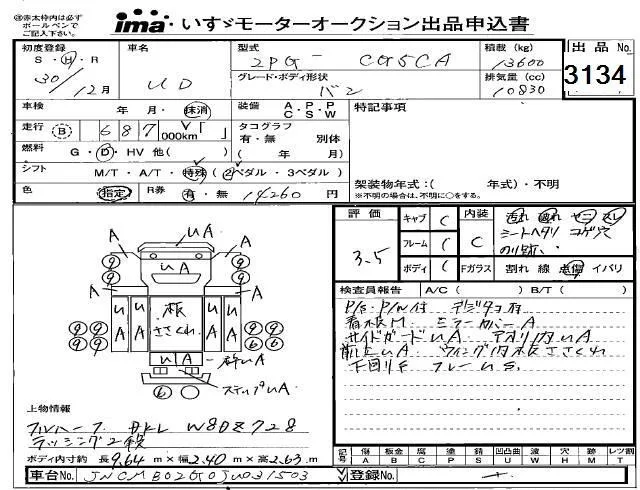 ※赤太枠内は必ず ボールペンで ご記入下さい。
ima・いすゞモーターオークション出品申込書
初度登録 S・H・R 30/12月
車名 UD
型式 2PG- CG5CA
積載 (kg) 13600
出品No. 3134
グレード・ボディ形状 バン
排気量 (cc) 10830
車検 年 月・抹消
装備 A・P・P C・S・W
特記事項
走行 B 687 000km
タコグラフ 有・無 別体
燃料 G・D・HV 他( )
( 年 月)
シフト M/T・A/T・特殊 (2ペダル・3ペダル)
架装物年式:( 年式)・不明
※不明の場合は、不明に○をする。
色 指定 R券 有・無 14260 円
評価 3.5
キャブ C 内装 C
汚れ 破れ ヤニ スレ
シートヘタリ コゲ穴
フレーム C
のり跡
ボディ C Fガラス 割れ 線 点傷 イバリ
A UA A
UA
A A
UA UA 板 ささくれ UA UA
UA
ステップUA
検査員報告 A/C( ) B/T( )
P/S・P/W付 デジタコ有
看板M ミラーカバーA
サイドガードUA アオリ内UA
前立UA ウィング内板ささくれ
下回りF フレームS
上物情報
フルハーフ 型式 W80Z728
ラッシング2段
ボディ内寸約 長9.64m×幅2.40m×高2.63m
記号 傷A 板金B 腐C 塗P 錆S 凹凸曲U 波W 穴H 跡M レツ割T
車台No. JNCMB02G0JU031503
登録No.